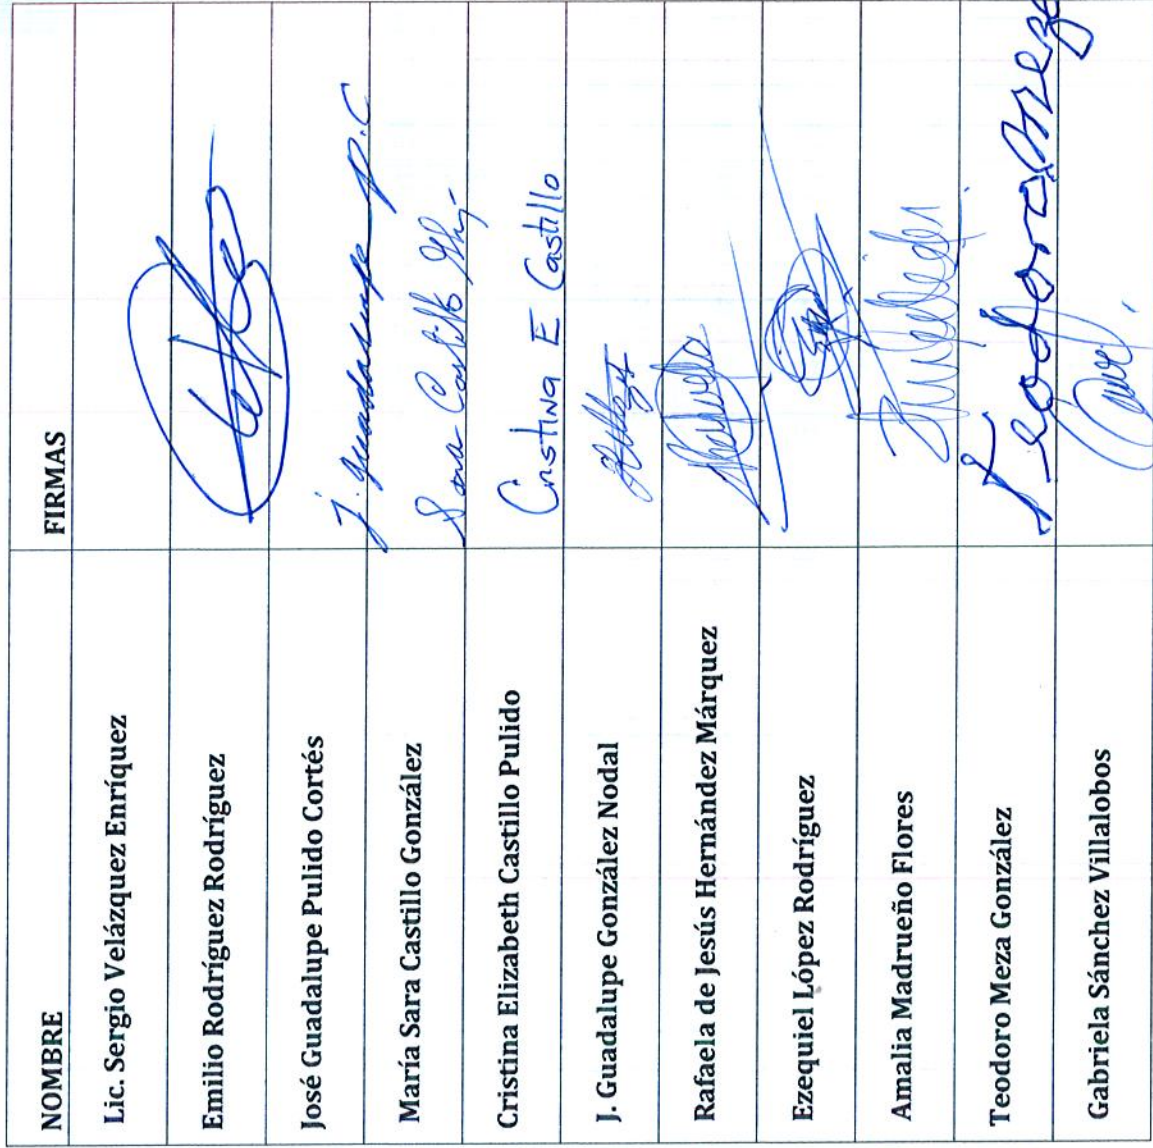 NOMBRE FIRMAS
Lic. Sergio Velázquez Enríquez
Emilio Rodríguez Rodríguez
José Guadalupe Pulido Cortés J. Guadalupe P.C
María Sara Castillo González Sara Castillo
Cristina Elizabeth Castillo Pulido Cristina E Castillo
J. Guadalupe González Nodal
Rafaela de Jesús Hernández Márquez
Ezequiel López Rodríguez
Amalia Madrueño Flores
Teodoro Meza González Teodoro Meza
Gabriela Sánchez Villalobos